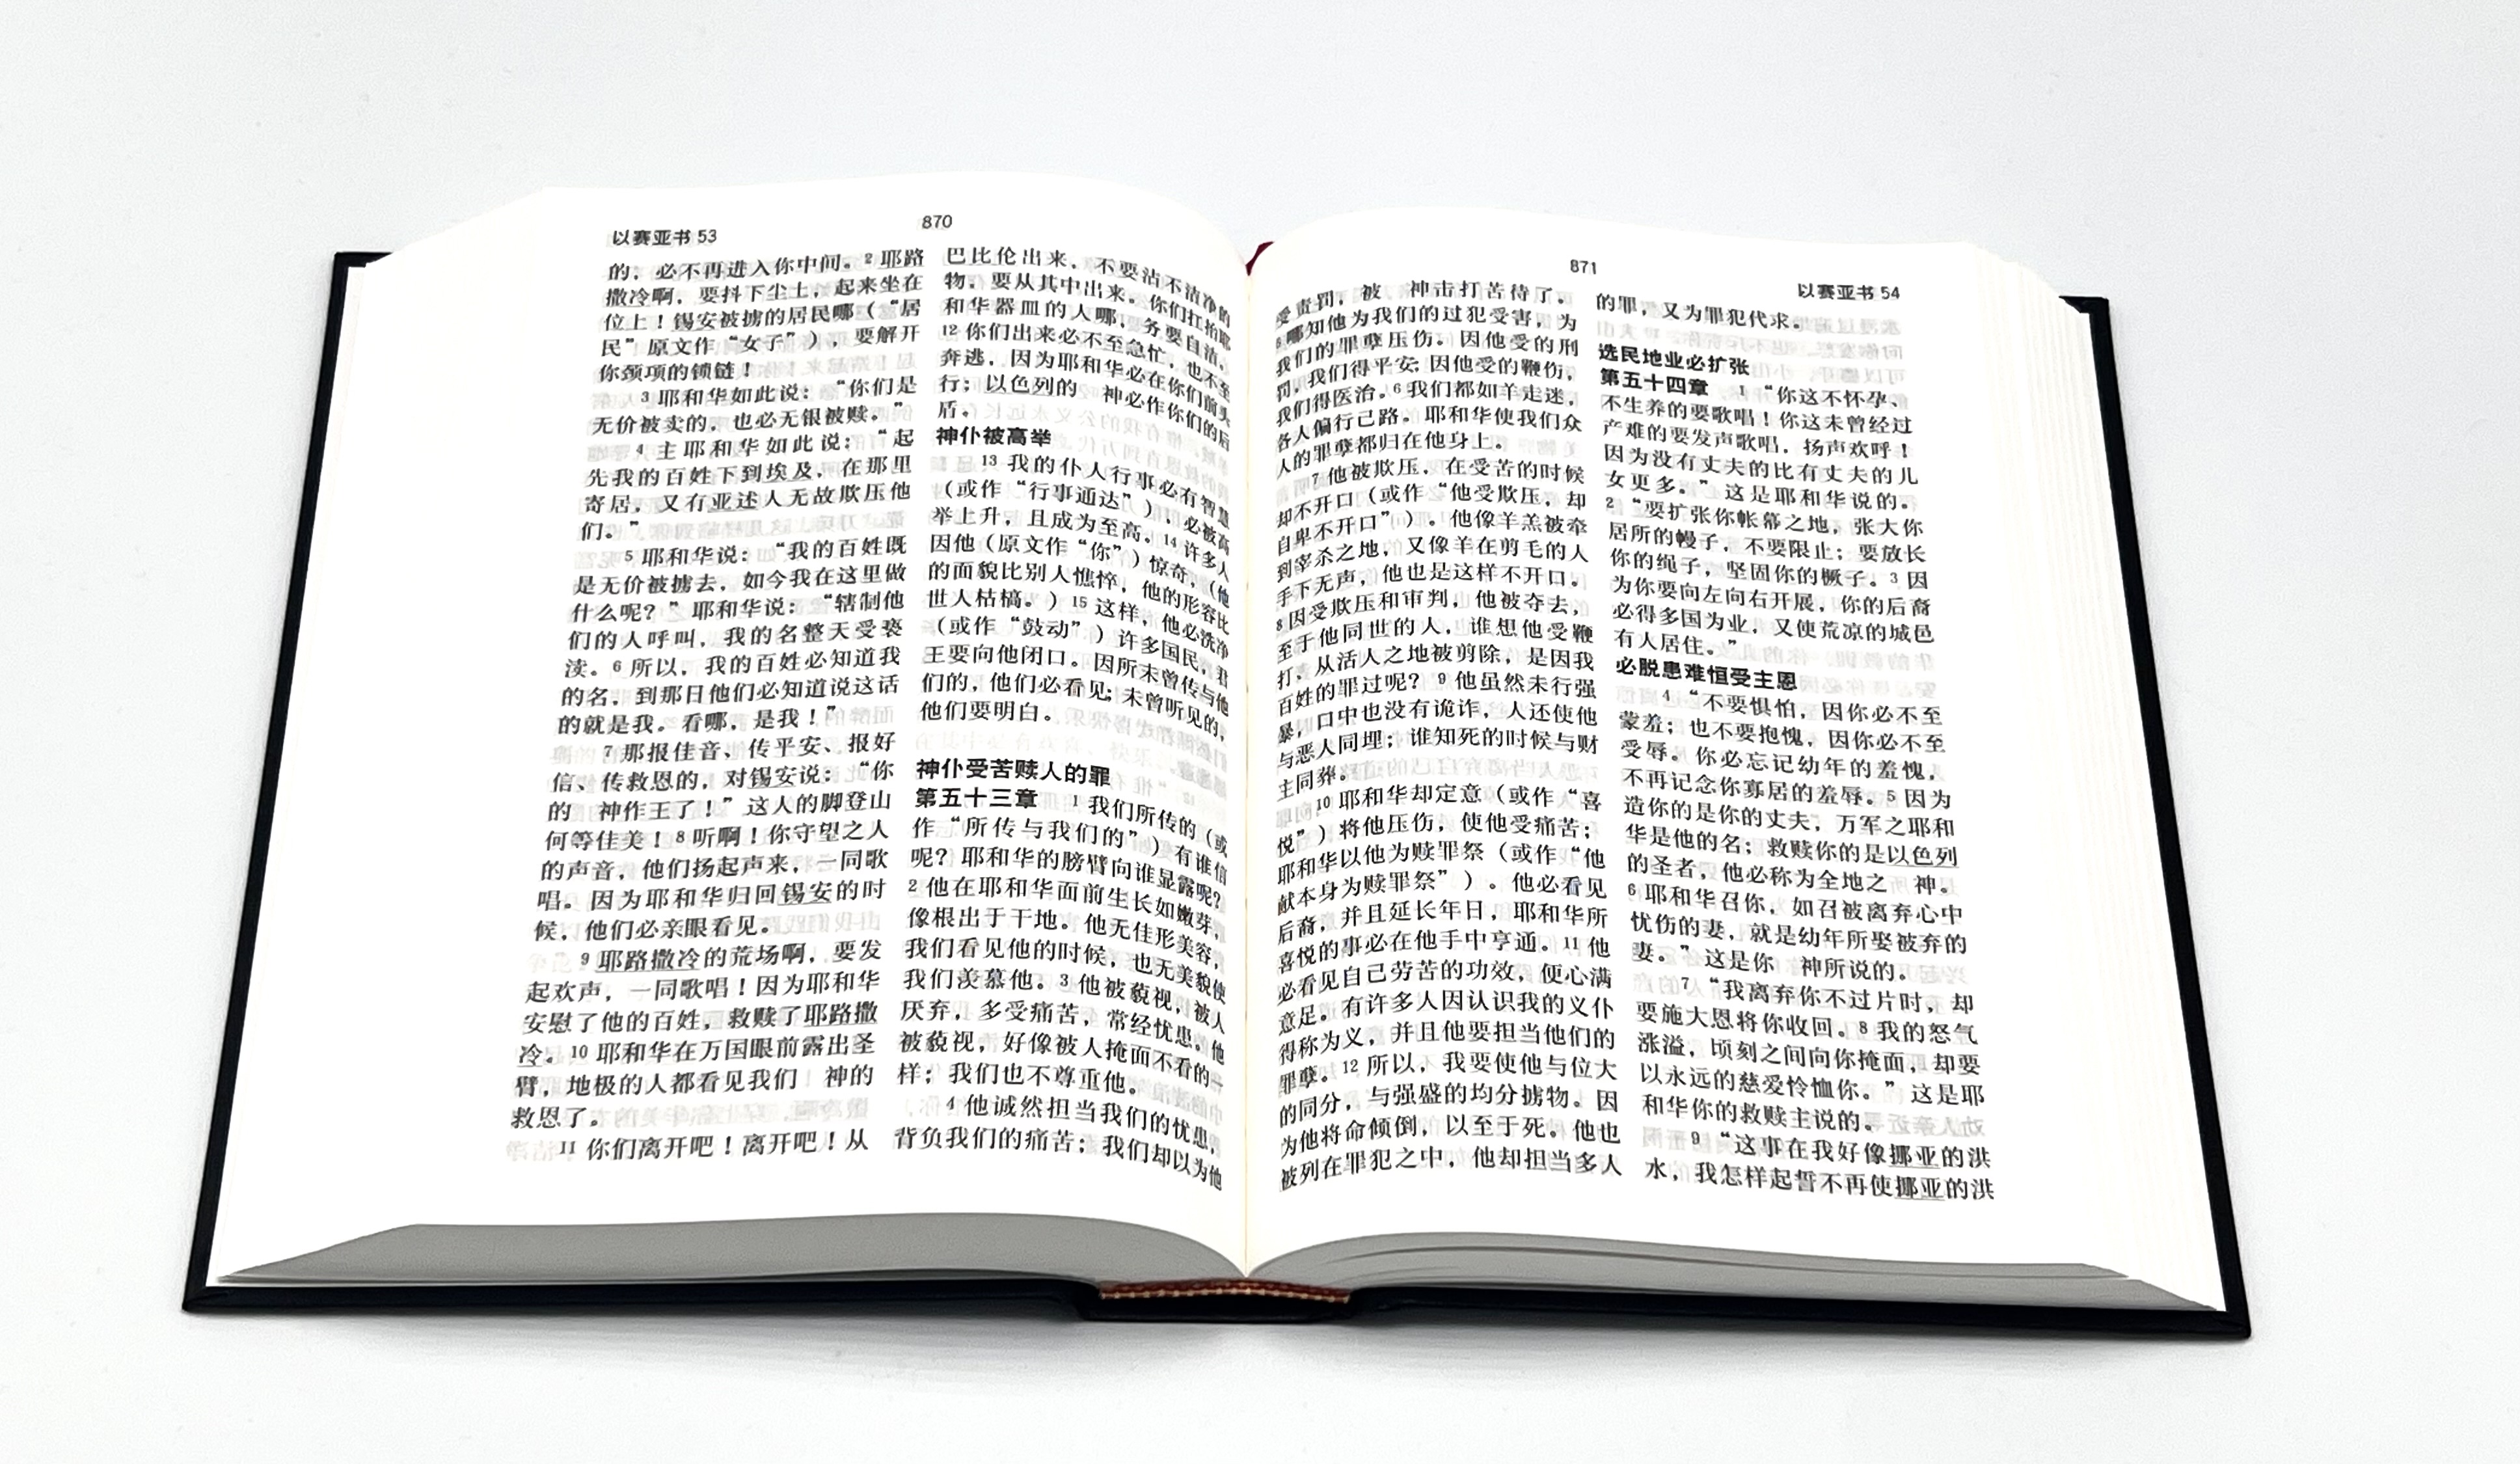 以赛亚书 53
870
的，必不再进入你中间。2 耶路
撒冷啊，要抖下尘土，起来坐在
位上！锡安被掳的居民哪（“居
民”原文作“女子”），要解开
你颈项的锁链！
3 耶和华如此说：“你们是
无价被卖的，也必无银被赎。”
4 主耶和华如此说：“起
先我的百姓下到埃及，在那里
寄居，又有亚述人无故欺压他
们。”
5 耶和华说：“我的百姓既
是无价被掳去，如今我在这里做
什么呢？”耶和华说：“辖制他
们的人呼叫，我的名整天受亵
渎。6 所以，我的百姓必知道我
的名，到那日他们必知道说这话
的就是我。看哪，是我！”
7 那报佳音、传平安、报好
信、传救恩的，对锡安说：“你
的 神作王了！”这人的脚登山
何等佳美！8 听啊！你守望之人
的声音，他们扬起声来，一同歌
唱。因为耶和华归回锡安的时
候，他们必亲眼看见。
9 耶路撒冷的荒场啊，要发
起欢声，一同歌唱！因为耶和华
安慰了他的百姓，救赎了耶路撒
冷。10 耶和华在万国眼前露出圣
臂，地极的人都看见我们 神的
救恩了。
11 你们离开吧！离开吧！从
巴比伦出来，不要沾不洁净的
物。要从其中出来。你们扛抬耶
和华器皿的人哪，务要自洁。
12 你们出来必不至急忙，也不至
奔逃，因为耶和华必在你们前头
行；以色列的 神必作你们的后
盾。
神仆被高举
13 我的仆人行事必有智慧
（或作“行事通达”），必被高
举上升，且成为至高。14 许多人
因他（原文作“你”）惊奇，（他
的面貌比别人憔悴，他的形容比
世人枯槁。）15 这样，他必洗净
（或作“鼓动”）许多国民，君
王要向他闭口。因所未曾传与他
们的，他们必看见；未曾听见的，
他们要明白。
神仆受苦赎人的罪
第五十三章 1 我们所传的（或
作“所传与我们的”）有谁信
呢？耶和华的膀臂向谁显露呢？
2 他在耶和华面前生长如嫩芽，
像根出于干地。他无佳形美容，
我们看见他的时候，也无美貌使
我们羡慕他。3 他被藐视，被人
厌弃，多受痛苦，常经忧患。他
被藐视，好像被人掩面不看的一
样；我们也不尊重他。
4 他诚然担当我们的忧患，
背负我们的痛苦；我们却以为他
871
以赛亚书 54
受责罚，被 神击打苦待了。
5 哪知他为我们的过犯受害，为
我们的罪孽压伤。因他受的刑
罚，我们得平安；因他受的鞭伤，
我们得医治。6 我们都如羊走迷，
各人偏行己路。耶和华使我们众
人的罪孽都归在他身上。
7 他被欺压，在受苦的时候
却不开口（或作“他受欺压，却
自卑不开口”）。他像羊羔被牵
到宰杀之地，又像羊在剪毛的人
手下无声，他也是这样不开口。
8 因受欺压和审判，他被夺去，
至于他同世的人，谁想他受鞭
打、从活人之地被剪除，是因我
百姓的罪过呢？9 他虽然未行强
暴，口中也没有诡诈，人还使他
与恶人同埋；谁知死的时候与财
主同葬。
10 耶和华却定意（或作“喜
悦”）将他压伤，使他受痛苦；
耶和华以他为赎罪祭（或作“他
献本身为赎罪祭”）。他必看见
后裔，并且延长年日，耶和华所
喜悦的事必在他手中亨通。11 他
必看见自己劳苦的功效，便心满
意足。有许多人因认识我的义仆
得称为义，并且他要担当他们的
罪孽。12 所以，我要使他与位大
的同分，与强盛的均分掳物。因
为他将命倾倒，以至于死。他也
被列在罪犯之中，他却担当多人
的罪，又为罪犯代求。
选民地业必扩张
第五十四章 1 “你这不怀孕、
不生养的要歌唱！你这未曾经过
产难的要发声歌唱，扬声欢呼！
因为没有丈夫的比有丈夫的儿
女更多。”这是耶和华说的。
2 “要扩张你帐幕之地，张大你
居所的幔子，不要限止；要放长
你的绳子，坚固你的橛子。3 因
为你要向左向右开展，你的后裔
必得多国为业，又使荒凉的城邑
有人居住。”
必脱患难恒受主恩
4 “不要惧怕，因你必不至
蒙羞；也不要抱愧，因你必不至
受辱。你必忘记幼年的羞愧，
不再记念你寡居的羞辱。5 因为
造你的是你的丈夫，万军之耶和
华是他的名；救赎你的是以色列
的圣者，他必称为全地之 神。
6 耶和华召你，如召被离弃心中
忧伤的妻，就是幼年所娶被弃的
妻。”这是你 神所说的。
7 “我离弃你不过片时，却
要施大恩将你收回。8 我的怒气
涨溢，顷刻之间向你掩面，却要
以永远的慈爱怜恤你。”这是耶
和华你的救赎主说的。
9 “这事在我好像挪亚的洪
水，我怎样起誓不再使挪亚的洪